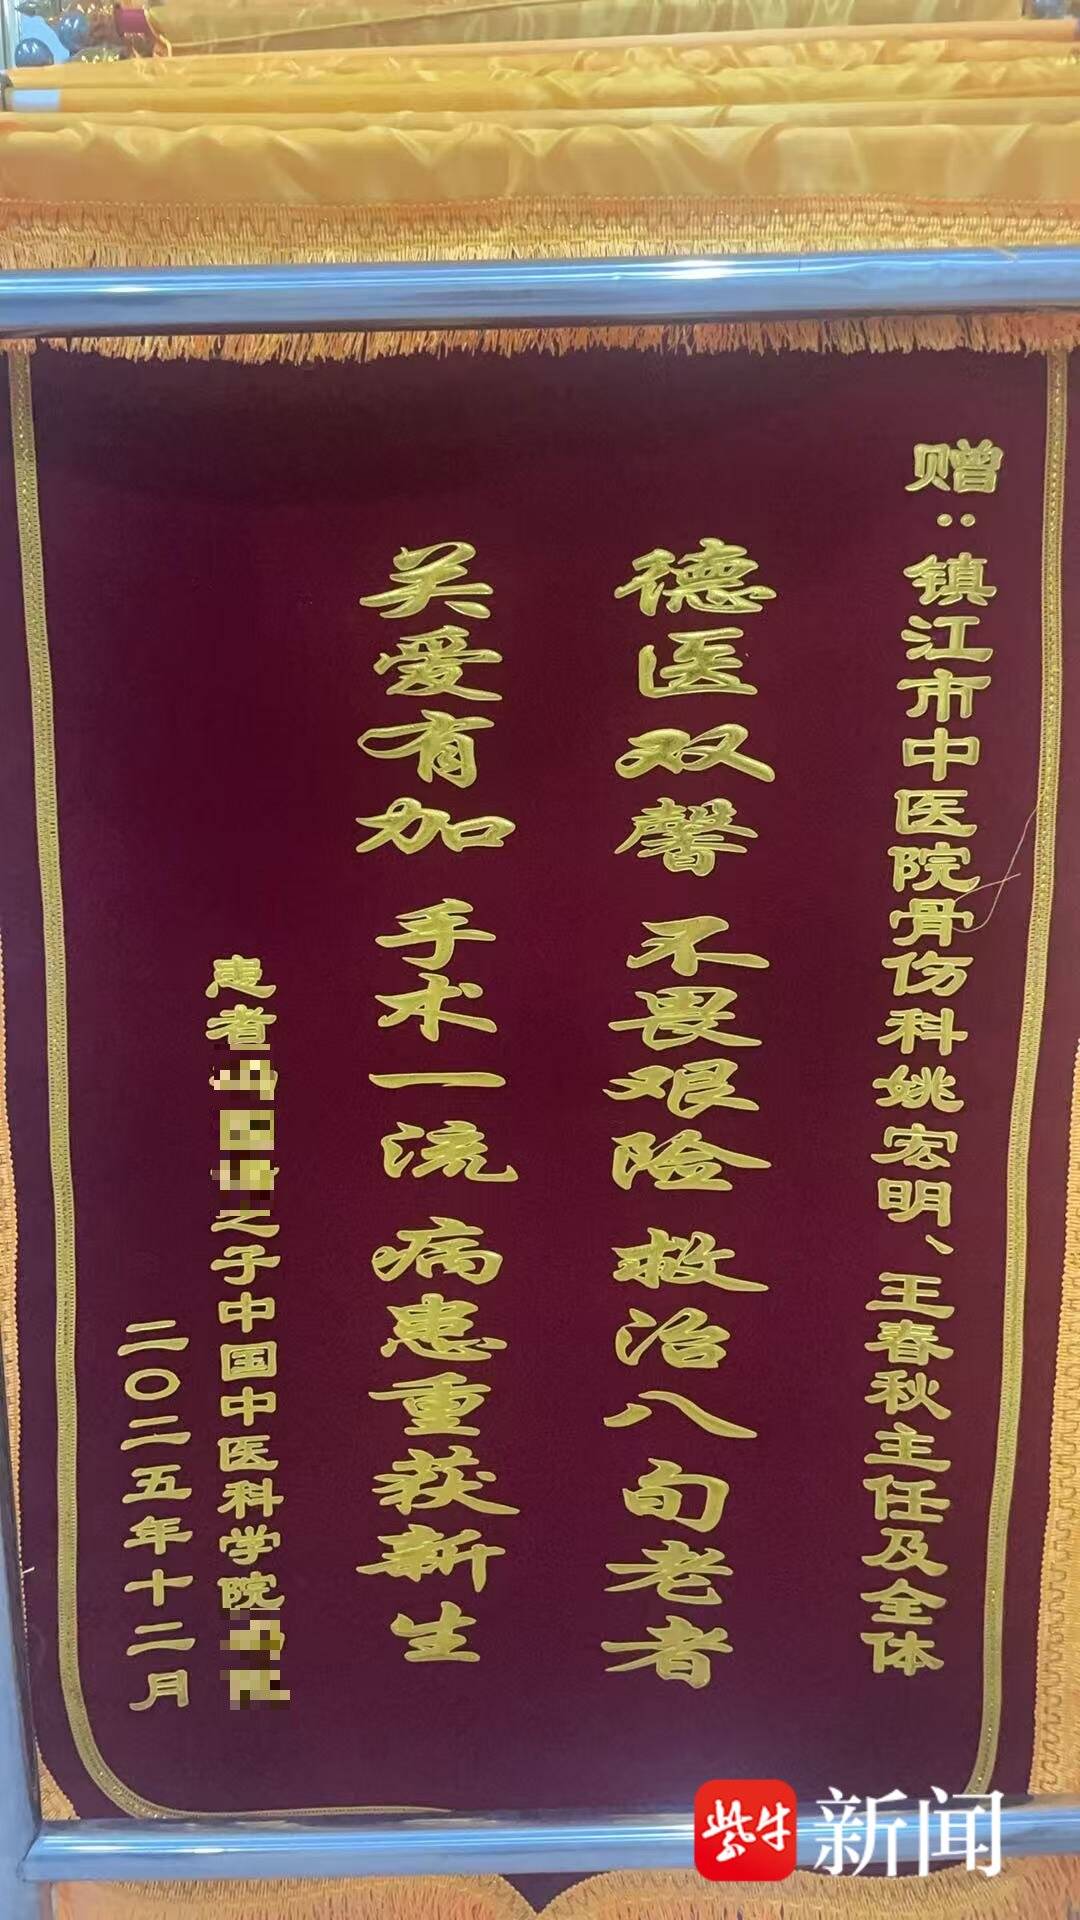 赠：镇江市中医院骨伤科姚宏明、王春秋主任及全体
德医双馨 不畏艰险 救治八旬老者
关爱有加 手术一流 病患重获新生
患者之子中国中医科学院
二〇二五年十二月
紫牛新闻